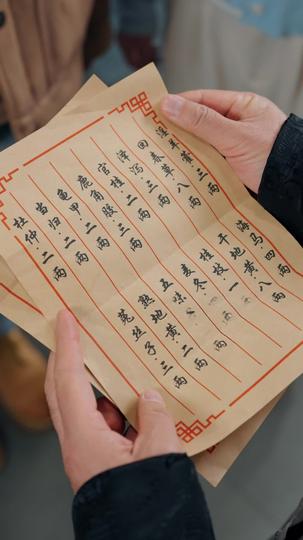 淫羊藿·三两
回春草·八两
泽泻·三两
官桂·二两
鹿角胶·三两
龟甲·二两
当归·二两
杜仲·二两
海马·四两
干地黄·八两
桂枝·一两
麦冬 两
五味 两
熟地黄·二两
菟丝子·三两